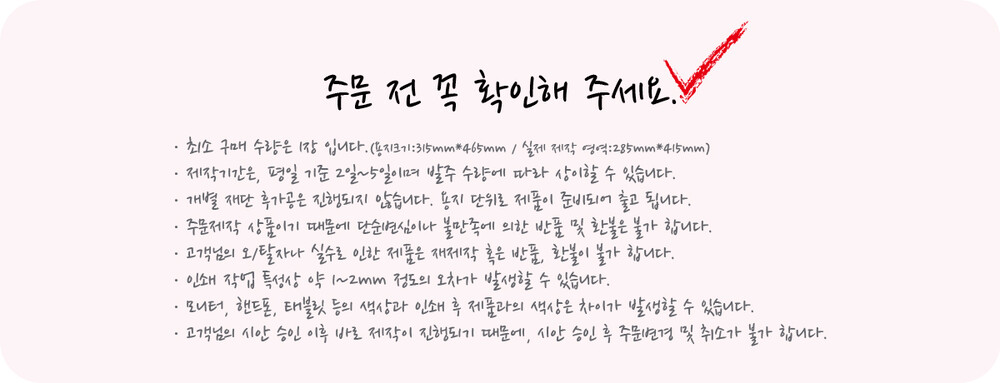 주문 전 꼭 확인해 주세요.
· 최소 구매 수량은 1장 입니다.(용지크기:315mm*465mm / 실제 제작 영역:285mm*415mm)
· 제작기간은, 평일 기준 2일~5일이며 발주 수량에 따라 상이할 수 있습니다.
· 개별 재단 후가공은 진행되지 않습니다. 용지 단위로 제품이 준비되어 출고 됩니다.
· 주문제작 상품이기 때문에 단순변심이나 불만족에 의한 반품 및 환불은 불가 합니다.
· 고객님의 오/탈자나 실수로 인한 제품은 재제작 혹은 반품, 환불이 불가 합니다.
· 인쇄 작업 특성상 약 1~2mm 정도의 오차가 발생할 수 있습니다.
· 모니터, 핸드폰, 태블릿 등의 색상과 인쇄 후 제품과의 색상은 차이가 발생할 수 있습니다.
· 고객님의 시안 승인 이후 바로 제작이 진행되기 때문에, 시안 승인 후 주문변경 및 취소가 불가 합니다.